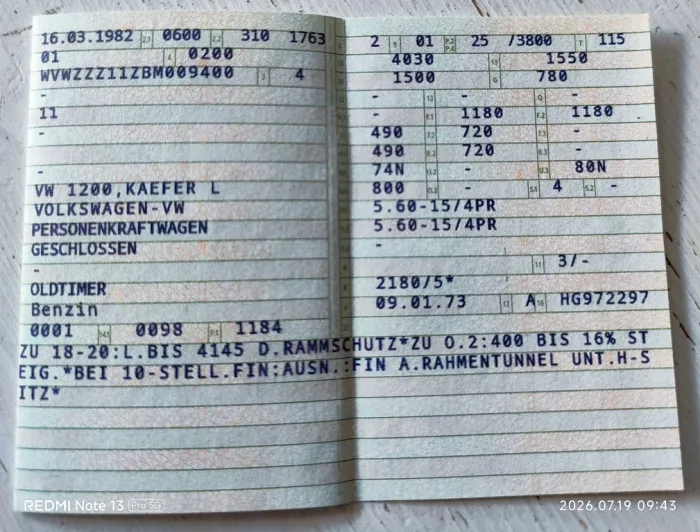 16.03.1982 2.1 0600 2.2 310 1763
01 4 0200
WVWZZZ11ZBM009400 3 4
-
11
-
-
VW 1200,KAEFER L
VOLKSWAGEN-VW
PERSONENKRAFTWAGEN
GESCHLOSSEN
-
OLDTIMER
Benzin
0001 14.1 0098 P.1 1184
2 9 01 P.2 P.4 25 /3800 T 115
4030 19 1550
1500 G 780
- 13 - Q -
- F.1 1180 F.2 1180
490 7.2 720 7.3 -
490 8.2 720 8.3 -
74N U.2 - U.3 80N
800 O.2 - S.1 4 S.2 -
5.60-15/4PR
5.60-15/4PR
-
11 3/-
2180/5*
09.01.73 17 A 16 HG972297
ZU 18-20:L.BIS 4145 D.RAMMSCHUTZ*ZU O.2:400 BIS 16% ST
EIG.*BEI 10-STELL.FIN:AUSN.:FIN A.RAHMENTUNNEL UNT.H-S
ITZ*
REDMI Note 13 Pro 5G
2026.07.19 09:43